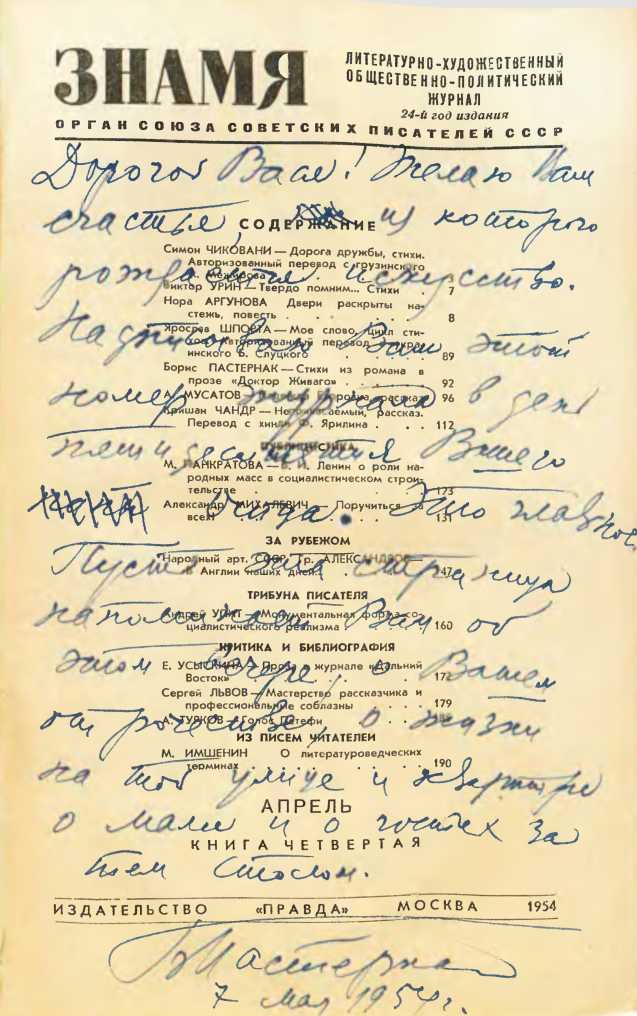 ЗНАМЯ
ЛИТЕРАТУРНО-ХУДОЖЕСТВЕННЫЙ
ОБЩЕСТВЕННО-ПОЛИТИЧЕСКИЙ
ЖУРНАЛ
24-й год издания
ОРГАН СОЮЗА СОВЕТСКИХ ПИСАТЕЛЕЙ СССР
Дорогой Вася! Желаю Вам
счастья из которого
СОДЕРЖАНИЕ
Симон ЧИКОВАНИ — Дорога дружбы, стихи.
Авторизованный перевод с грузинского
рождается искусство.
Виктор УРИН — Твердо помним... Стихи . 7
Нора АРГУНОВА Двери раскрыты на-
стежь, повесть . . . . . . 8
Надписываю Вам этот
Ярослав ШПОРТА — Мое слово, цикл сти-
инского Б. Слуцкого . . . . 89
Борис ПАСТЕРНАК — Стихи из романа в
прозе «Доктор Живаго» . . . 92
номер журнала в день
А. МУСАТОВ рассказ 96
Кришан ЧАНДР — рассказ.
Перевод с хинди Ф. Ярилина . . 112
ПУБЛИЦИСТИКА
пятидесятилетия Вашего
М. ПАНКРАТОВА — В. И. Ленин о роли на-
родных масс в социалистическом строи-
тельстве . . . 173
отца. Это главное.
Александр МИХАЛЕВИЧ. Поручиться
всем 131
ЗА РУБЕЖОМ
Пусть эта страница
Народный арт. СССР Гр. АЛЕКСАНДРОВ —
в Англии наших дней . . . 147
ТРИБУНА ПИСАТЕЛЯ
напоминает Вам об
Андрей УПИТ — Монументальная форма со-
циалистического реализма . . . 160
КРИТИКА И БИБЛИОГРАФИЯ
этом вечере, о Вашем
Е. УСЫСКИНА — Проза в журнале «Дальний
Восток» . . . 172
Сергей ЛЬВОВ — Мастерство рассказчика и
профессиональные соблазны . . . 179
отрочестве, о жизни
А. ТУРКОВ — Голос Петефи . . .
ИЗ ПИСЕМ ЧИТАТЕЛЕЙ
М. ИМШЕНИН О литературоведческих
терминах . . . 190
на той улице и квартире
АПРЕЛЬ
о маме и о гостях за
КНИГА ЧЕТВЕРТАЯ
тем столом.
ИЗДАТЕЛЬСТВО «ПРАВДА» МОСКВА 1954
БПастернак
7 мая 1954 г.